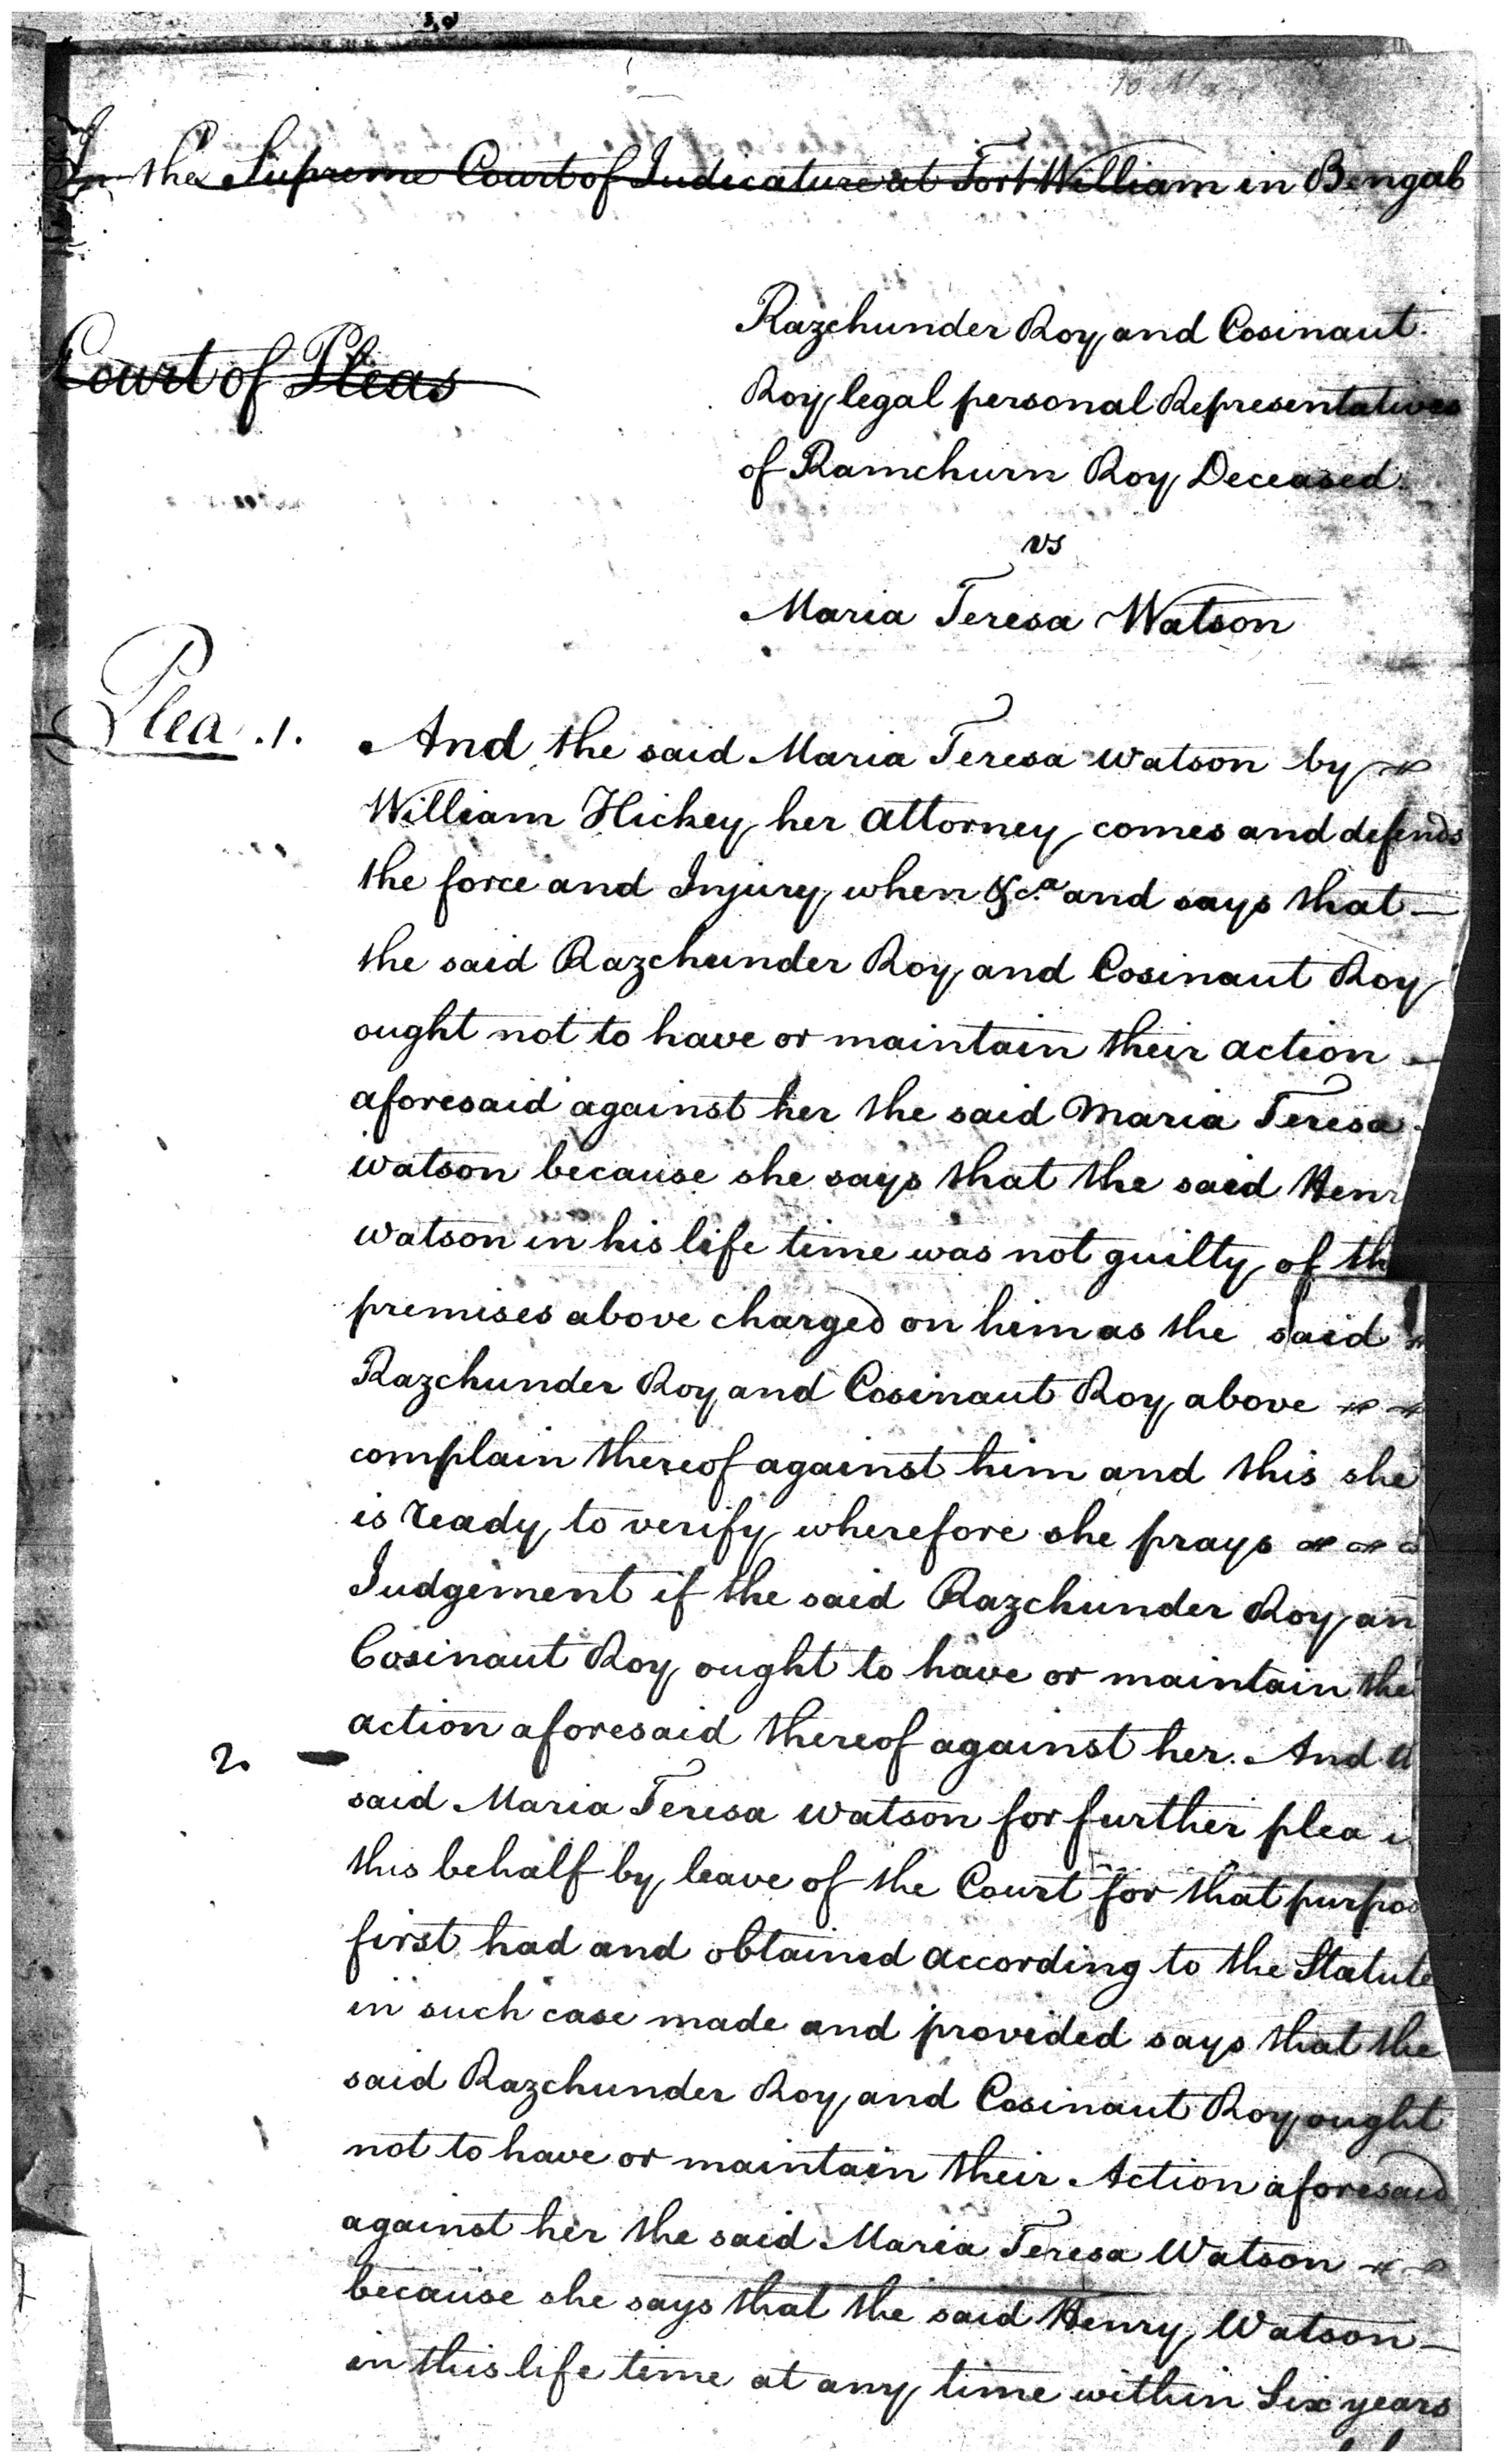 In the Supreme Court of Judicature at Fort William in Bengal
Razchunder Roy and Cosinaut
Court of Pleas
Roy legal personal Representatives
of Ramchurn Roy Deceased.
vs
Maria Teresa Watson
Plea .1. And the said Maria Teresa Watson by
William Hickey her attorney comes and defends
the force and Injury when &c.a and says that —
the said Razchunder Roy and Cosinaut Roy
ought not to have or maintain their action —
aforesaid against her the said Maria Teresa
Watson because she says that the said Henr
Watson in his life time was not guilty of th
premises above charged on him as the said
Razchunder Roy and Cosinaut Roy above
complain thereof against him and this she
is ready to verify wherefore she prays
Judgement if the said Razchunder Roy an
Cosinaut Roy ought to have or maintain the
action aforesaid thereof against her. And t
2. — said Maria Teresa Watson for further plea i
this behalf by leave of the Court for that purpos
first had and obtained according to the Statute
in such case made and provided says that the
said Razchunder Roy and Cosinaut Roy ought
not to have or maintain their Action aforesaid
against her the said Maria Teresa Watson
because she says that the said Henry Watson —
in this life time at any time within Six years